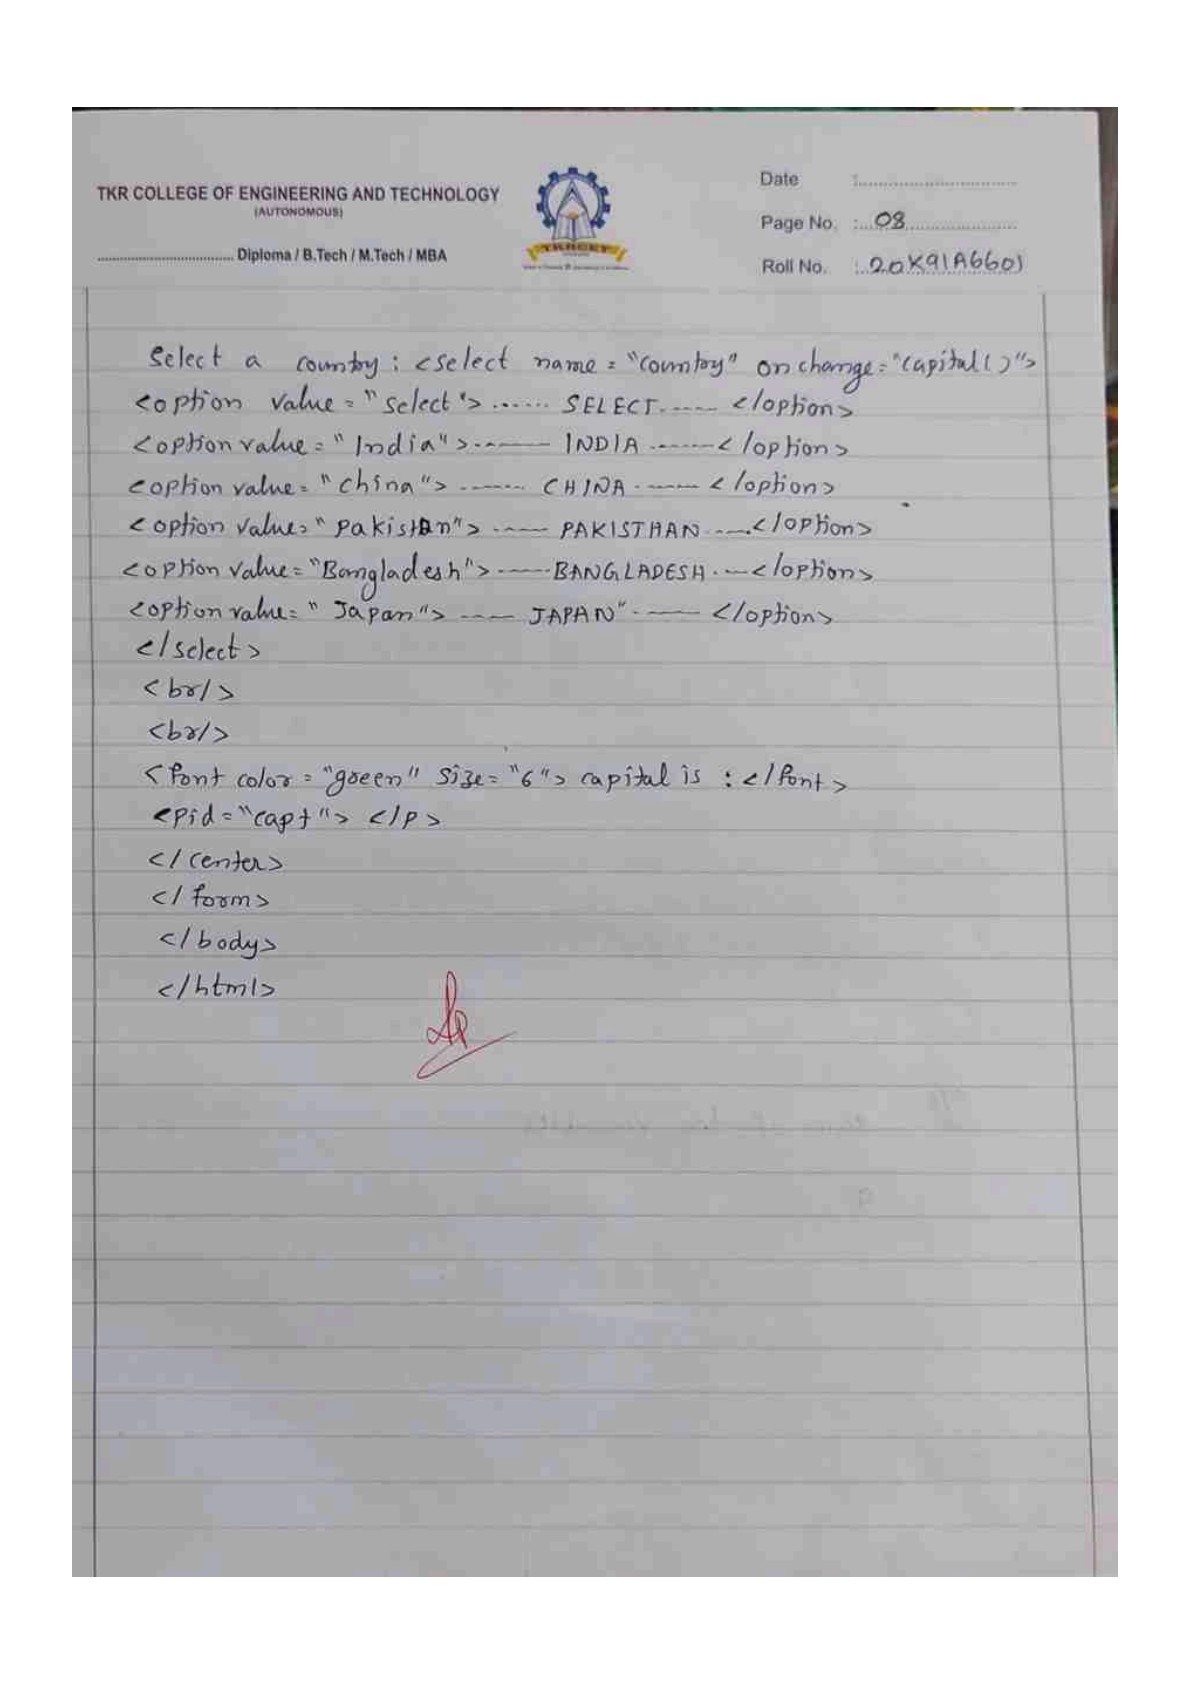 TKR COLLEGE OF ENGINEERING AND TECHNOLOGY
(AUTONOMOUS)
.................................. Diploma / B.Tech / M.Tech / MBA
TKRCET
Date :................................
Page No. :...08......................
Roll No. :..20K91A6601
Select a country : <select name = "country" onchange = "capital()">
<option value = "select"> ...... SELECT.---- </option>
<option value = "India">.------ INDIA ------</option>
<option value = "china"> ------ CHINA ------ </option>
<option value = "pakistan"> ----- PAKISTHAN ----.</option>
<option value = "Bangladesh"> -----BANGLADESH. --</option>
<option value = " Japan"> ---- JAPAN" ----- </option>
</select>
<br/>
<br/>
<font color = "green" size = "6"> capital is : </font>
<pid = "capt"> </p>
</center>
</form>
</body>
</html>